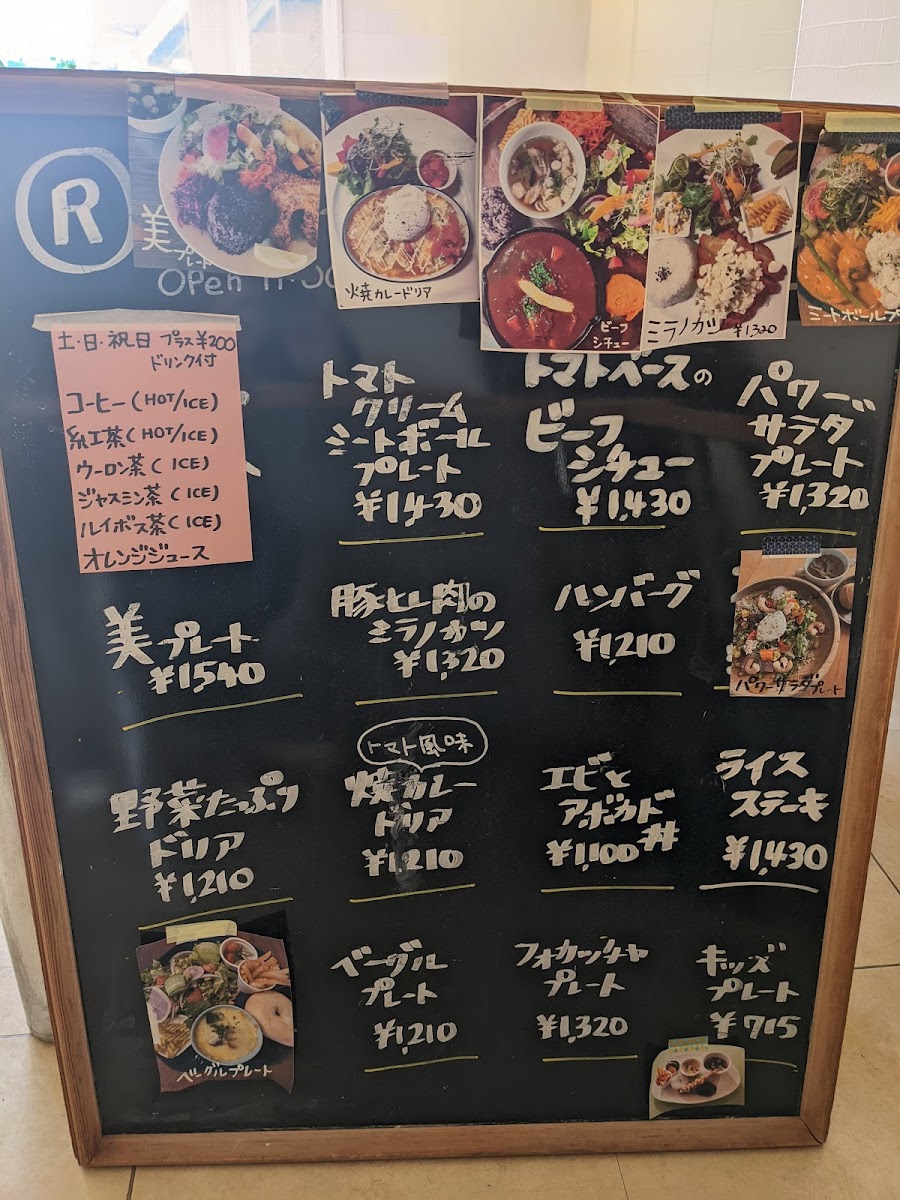 R
美
Open 11:30
焼カレードリア
ビーフ
シチュー
ミラノカツ ¥1,320
ミートボールプ
土・日・祝日 プラス¥200
ドリンク付
コーヒー (HOT/ICE)
紅茶 (HOT/ICE)
ウーロン茶 ( ICE)
ジャスミン茶 ( ICE)
ルイボス茶 ( ICE)
オレンジジュース
トマト
クリーム
ミートボール
プレート
¥1,430
トマトベースの
ビーフ
シチュー
¥1,430
パワー
サラダ
プレート
¥1,320
美プレート
¥1,540
豚ヒレ肉の
ミラノカツ
¥1,320
ハンバーグ
¥1,210
パワーサラダプレート
野菜たっぷり
ドリア
¥1,210
トマト風味
焼カレー
ドリア
¥1,210
エビと
アボカド丼
¥1,100
ライス
ステーキ
¥1,430
ベーグルプレート
ベーグル
プレート
¥1,210
フォカッチャ
プレート
¥1,320
キッズ
プレート
¥715